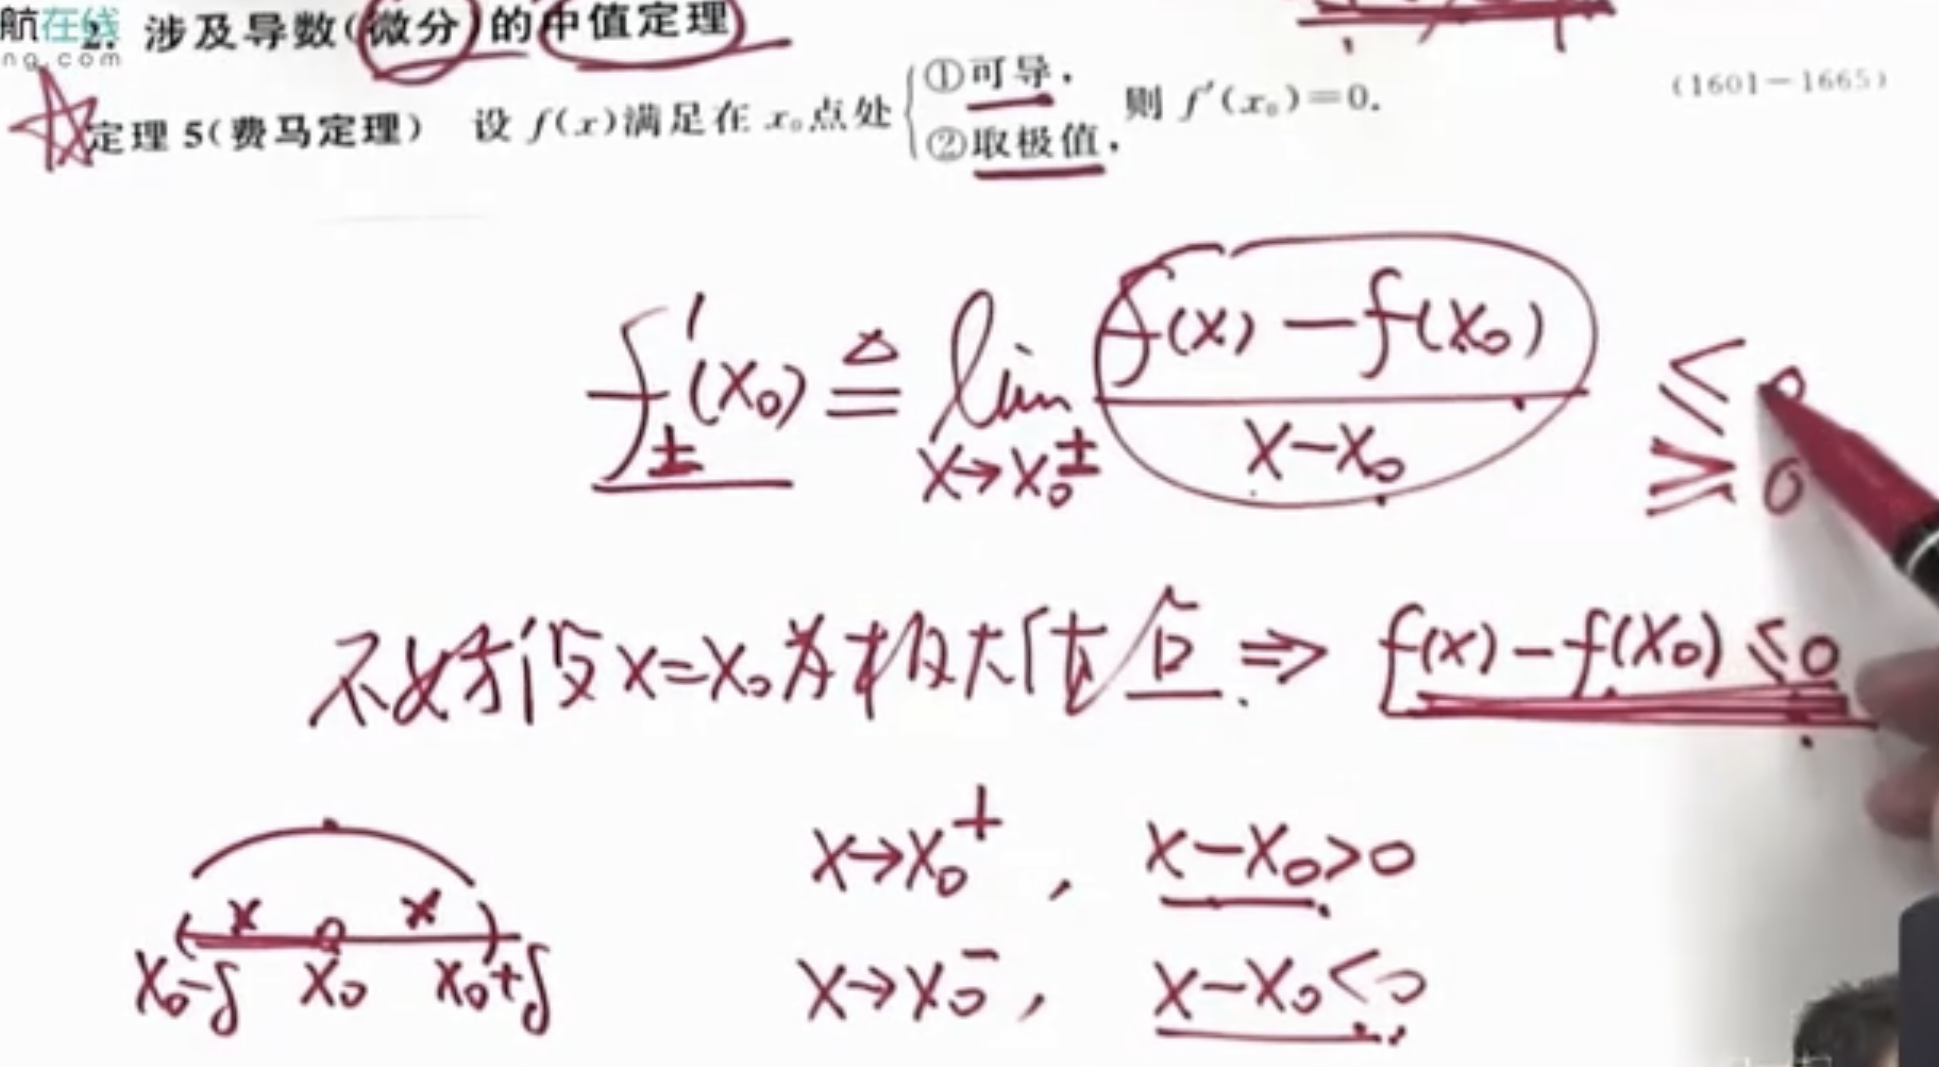 航在线
ng.com
2. 涉及导数(微分)的中值定理
定理 5(费马定理) 设 f(x)满足在 x₀点处 { ①可导, ②取极值, 则 f′(x₀)=0.
(1601-1665)
f′±(x₀) ≜ lim x→x₀± (f(x)-f(x₀))/(x-x₀) ≤ 0
≥ 0
不妨设 x=x₀为极大值点 ⇒ f(x)-f(x₀)≤0
x→x₀⁺, x-x₀>0
x x
x₀-δ x₀ x₀+δ
x→x₀⁻, x-x₀<0